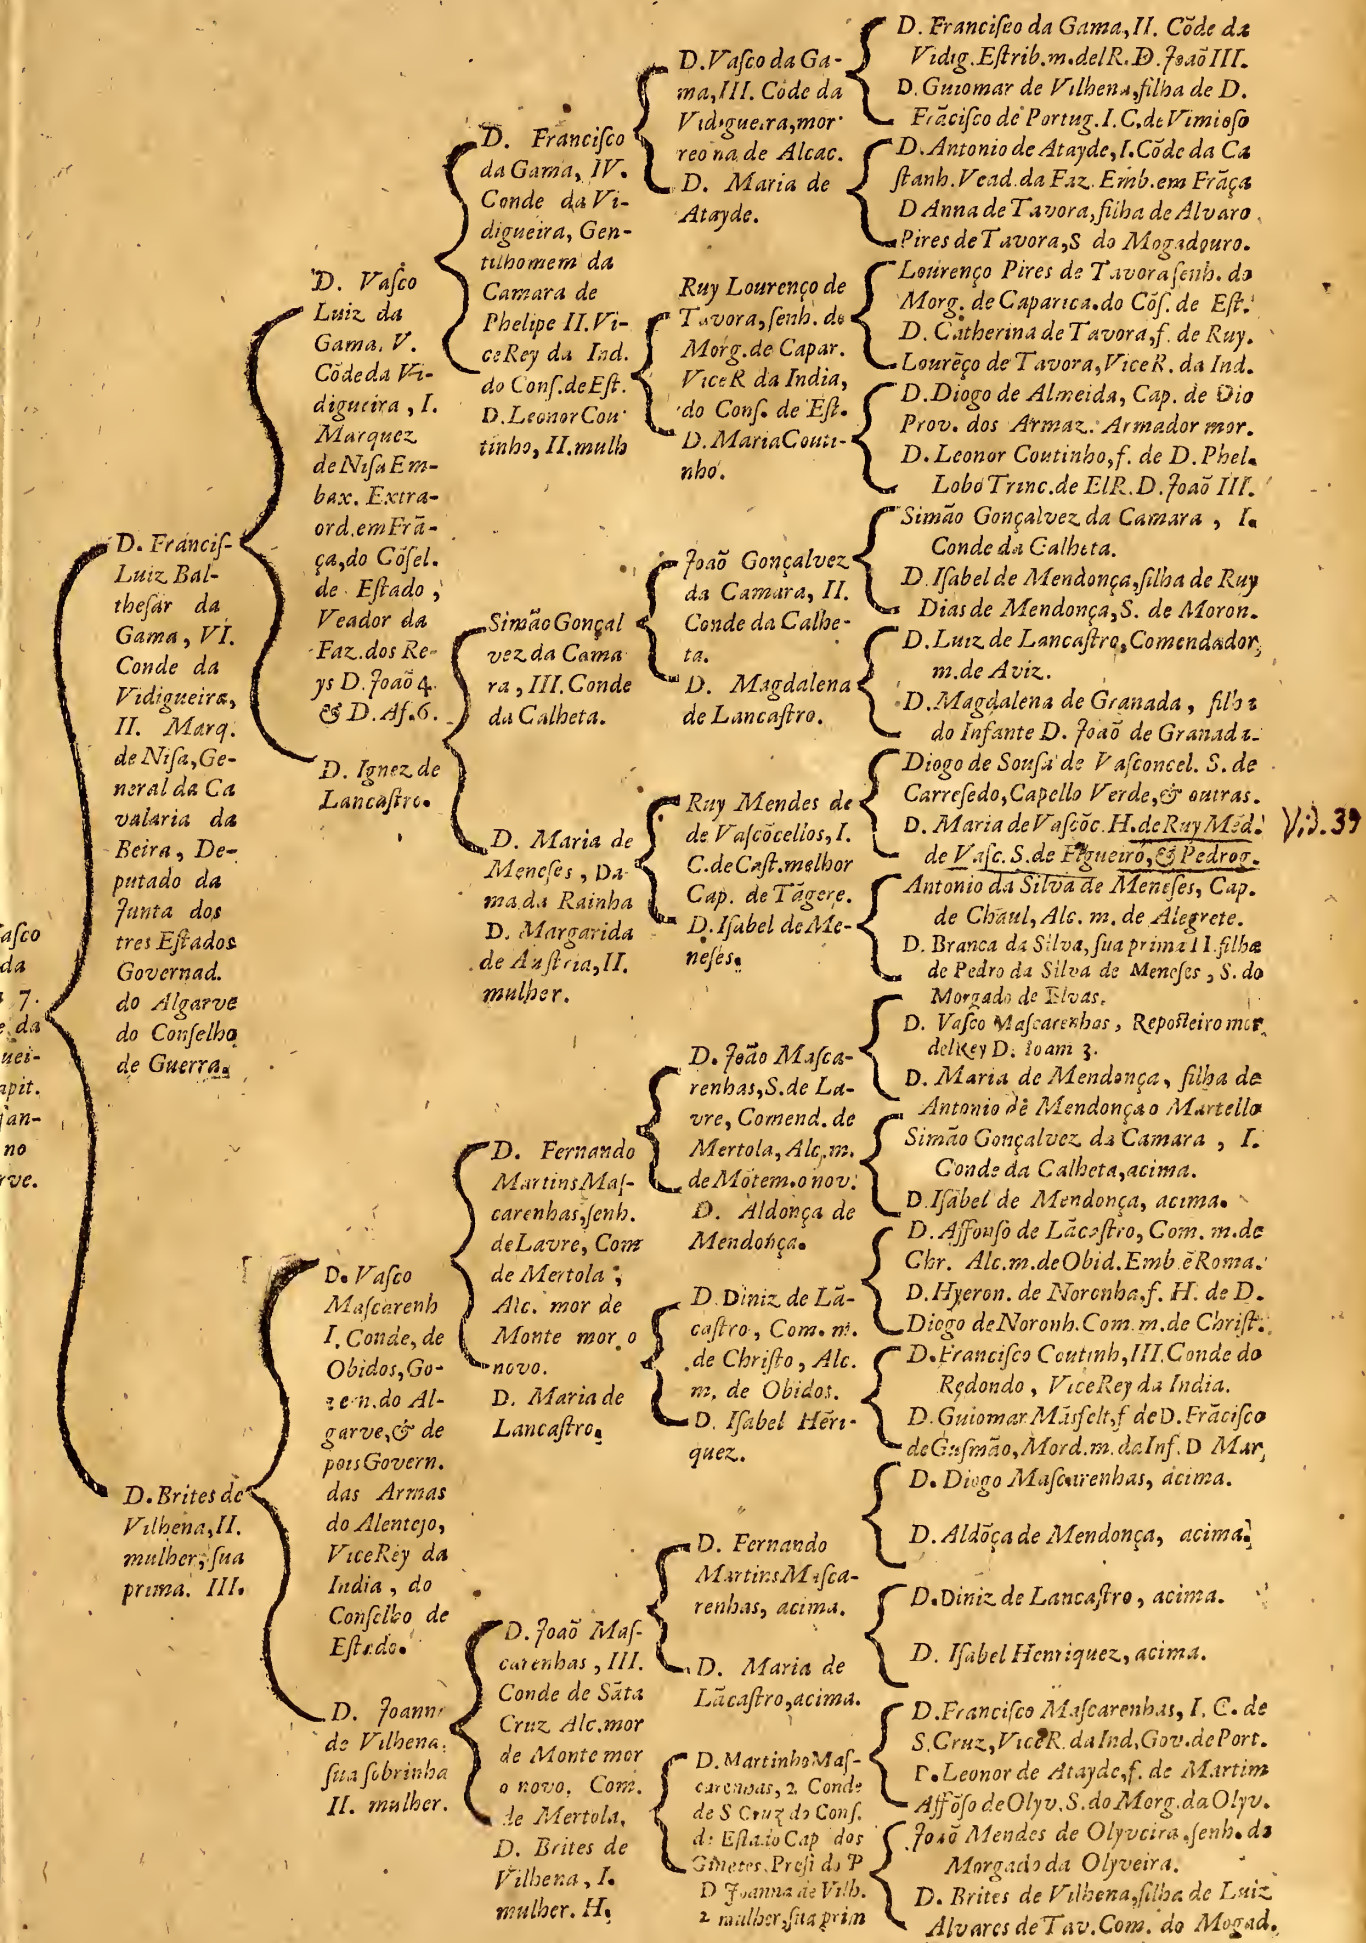 D. Francis-
Luiz Bal-
thesar da
Gama, VI.
Conde da
Vidigueira,
II. Marq.
de Nisa, Ge-
neral da Ca
valaria da
Beira, De-
putado da
Junta dos
tres Estados
Governad.
do Algarve
do Conselho
de Guerra.
D. Brites de
Vilhena, II.
mulher, sua
prima. III.
D. Vasco
Luiz da
Gama. V.
Cõde da Vi-
digueira, I.
Marquez
de Nisa Em-
bax. Extra-
ord. em Frã-
ça, do Cõsel.
de Estado,
Veador da
Faz. dos Re-
ys D. Joaõ 4.
& D. Af. 6.
D. Ignez de
Lancastro.
D. Vasco
Mascarenh
I. Conde, de
Obidos, Go-
do Al-
garve, & de
pois Govern.
das Armas
do Alentejo,
ViceRey da
India, do
Conselho de
Estado.
D. Joann
de Vilhena,
sua sobrinha
II. mulher.
D. Francisco
da Gama, IV.
Conde da Vi-
digueira, Gen-
tilhomem da
Camara de
Phelipe II. Vi-
ceRey da Ind.
do Cons. de Est.
D. Leonor Cou
tinho, II. mulh
Simão Gonçal
vez da Cama
ra, III. Conde
da Calheta.
D. Maria de
Meneses, Da
ma da Rainha
D. Margarida
de Austria, II.
mulher.
D. Fernando
Martins Mas-
carenhas, senh.
de Lavre, Com
de Mertola,
Alc. mor de
Monte mor o
novo.
D. Maria de
Lancastro.
D. Joaõ Mas-
carenhas, III.
Conde de Sãta
Cruz Alc. mor
de Monte mor
o novo, Com.
de Mertola.
D. Brites de
Vilhena, I.
mulher. H.
D. Vasco da Ga-
ma, III. Cõde da
Vidigueira, mor
reo na de Alcac.
D. Maria de
Atayde.
Ruy Lourenço de
Tavora, senh. do
Morg. de Capar.
ViceR da India,
do Cons. de Est.
D. Maria Couti-
nho.
Joaõ Gonçalvez
da Camara, II.
Conde da Calhe-
ta.
D. Magdalena
de Lancastro.
Ruy Mendes de
de Vascõcellos, I.
C. de Cast. melhor
Cap. de Tãgere.
D. Isabel de Me-
neses.
D. Joaõ Masca-
renhas, S. de La-
vre, Comend. de
Mertola, Alc. m.
de Mõtem. o nov.
D. Aldonça de
Mendonça.
D. Diniz de Lã-
castro, Com. m.
de Christo, Alc.
m. de Obidos.
D. Isabel Hẽri-
quez.
D. Fernando
Martins Masca-
renhas, acima.
D. Maria de
Lãcastro, acima.
D. Martinho Mas-
carenhas, 2. Conde
de S Cruz do Cons.
de Estado Cap dos
Ginetes. Presi do P
D Joanna de Vilh.
2 mulher, sua prim
D. Francisco da Gama, II. Cõde da
Vidig. Estrib. m. delR. D. Joaõ III.
D. Guiomar de Vilhena, filha de D.
Frãcisco de Portug. I. C. de Vimioso
D. Antonio de Atayde, I. Cõde da Ca
stanh. Vead. da Faz. Emb. em Frãça
D Anna de Tavora, filha de Alvaro
Pires de Tavora, S do Mogadouro.
Lourenço Pires de Tavora senh. do
Morg. de Caparica. do Cõs. de Est.
D. Catherina de Tavora, f. de Ruy.
Lourẽço de Tavora, ViceR. da Ind.
D. Diogo de Almeida, Cap. de Dio
Prov. dos Armaz. Armador mor.
D. Leonor Coutinho, f. de D. Phel.
Lobo Trinc. de ElR. D. Joaõ III.
Simão Gonçalvez da Camara, I.
Conde da Calheta.
D. Isabel de Mendonça, filha de Ruy
Dias de Mendonça, S. de Moron.
D. Luiz de Lancastro, Comendador
m. de Aviz.
D. Magdalena de Granada, filha
do Infante D. Joaõ de Granada.
Diogo de Sousa de Vasconcel. S. de
Carresedo, Capello Verde, & outras.
D. Maria de Vascõc. H. de Ruy Mẽd. Vid. 39
de Vasc. S. de Figueirò, & Pedrog.
Antonio da Silva de Meneses, Cap.
de Chaul, Alc. m. de Alegrete.
D. Branca da Silva, sua prima II. filha
de Pedro da Silva de Meneses, S. do
Morgado de Elvas.
D. Vasco Mascarenhas, Reposteiro mor
delRey D. Ioam 3.
D. Maria de Mendonça, filha de
Antonio de Mendonça o Martello
Simão Gonçalvez da Camara, I.
Conde da Calheta, acima.
D. Isabel de Mendonça, acima.
D. Affonso de Lãcastro, Com. m. de
Chr. Alc. m. de Obid. Emb. ẽ Roma.
D. Hyeron. de Noronha. f. H. de D.
Diogo de Noronh. Com. m. de Christ.
D. Francisco Coutinh, III. Conde do
Redondo, ViceRey da India.
D. Guiomar Mãsfelt, f de D. Frãcisco
de Gusmão, Mord. m. da Inf. D Mar,
D. Diogo Mascarenhas, acima.
D. Aldõça de Mendonça, acima.
D. Diniz de Lancastro, acima.
D. Isabel Henriquez, acima.
D. Francisco Mascarenhas, I. C. de
S. Cruz, ViceR. da Ind, Gov. de Port.
D. Leonor de Atayde, f. de Martim
Affõso de Olyv. S. do Morg. da Olyv.
Joaõ Mendes de Olyveira. senh. do
Morgado da Olyveira.
D. Brites de Vilhena, filha de Luiz
Alvares de Tav. Com. do Mogad.